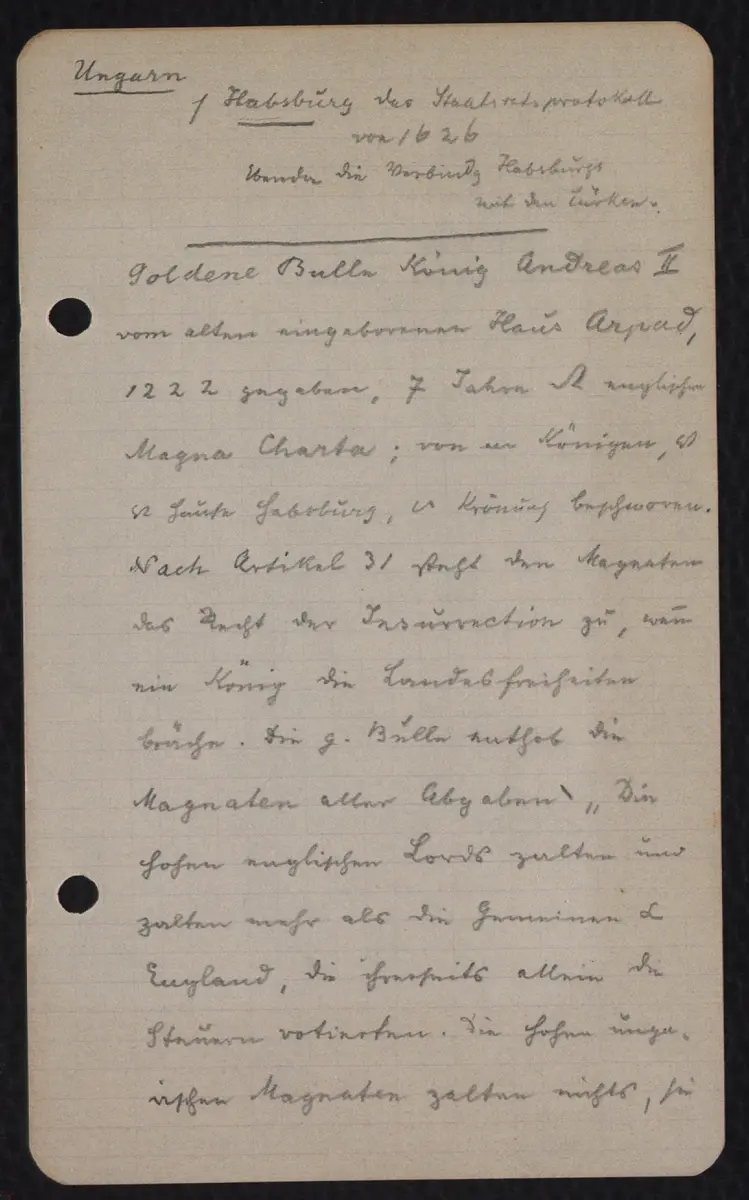 Ungarn
/ Habsburg das Staatsratsprotokoll
von 1626
die Verbindg Habsburgs
mit den Türken.
Goldene Bulle König Andreas II
vom alten eingeborenen Haus Arpad,
1222 gegeben, 7 Jahre englischen
Magna Charta; von Königen,
Hause Habsburg, Krönung beschworen.
Nach Artikel 31 steht den Magnaten
das Recht der Insurrection zu, wenn
ein König die Landesfreiheiten
bräche. Die g. Bulle enthob die
Magnaten aller Abgaben, „Die
hohen englischen Lords zalten und
zalten mehr als die Gemeinen
England, die ihrerseits allein die
Steuern votierten. Die hohen unga-
rischen Magnaten zalten nichts, sie